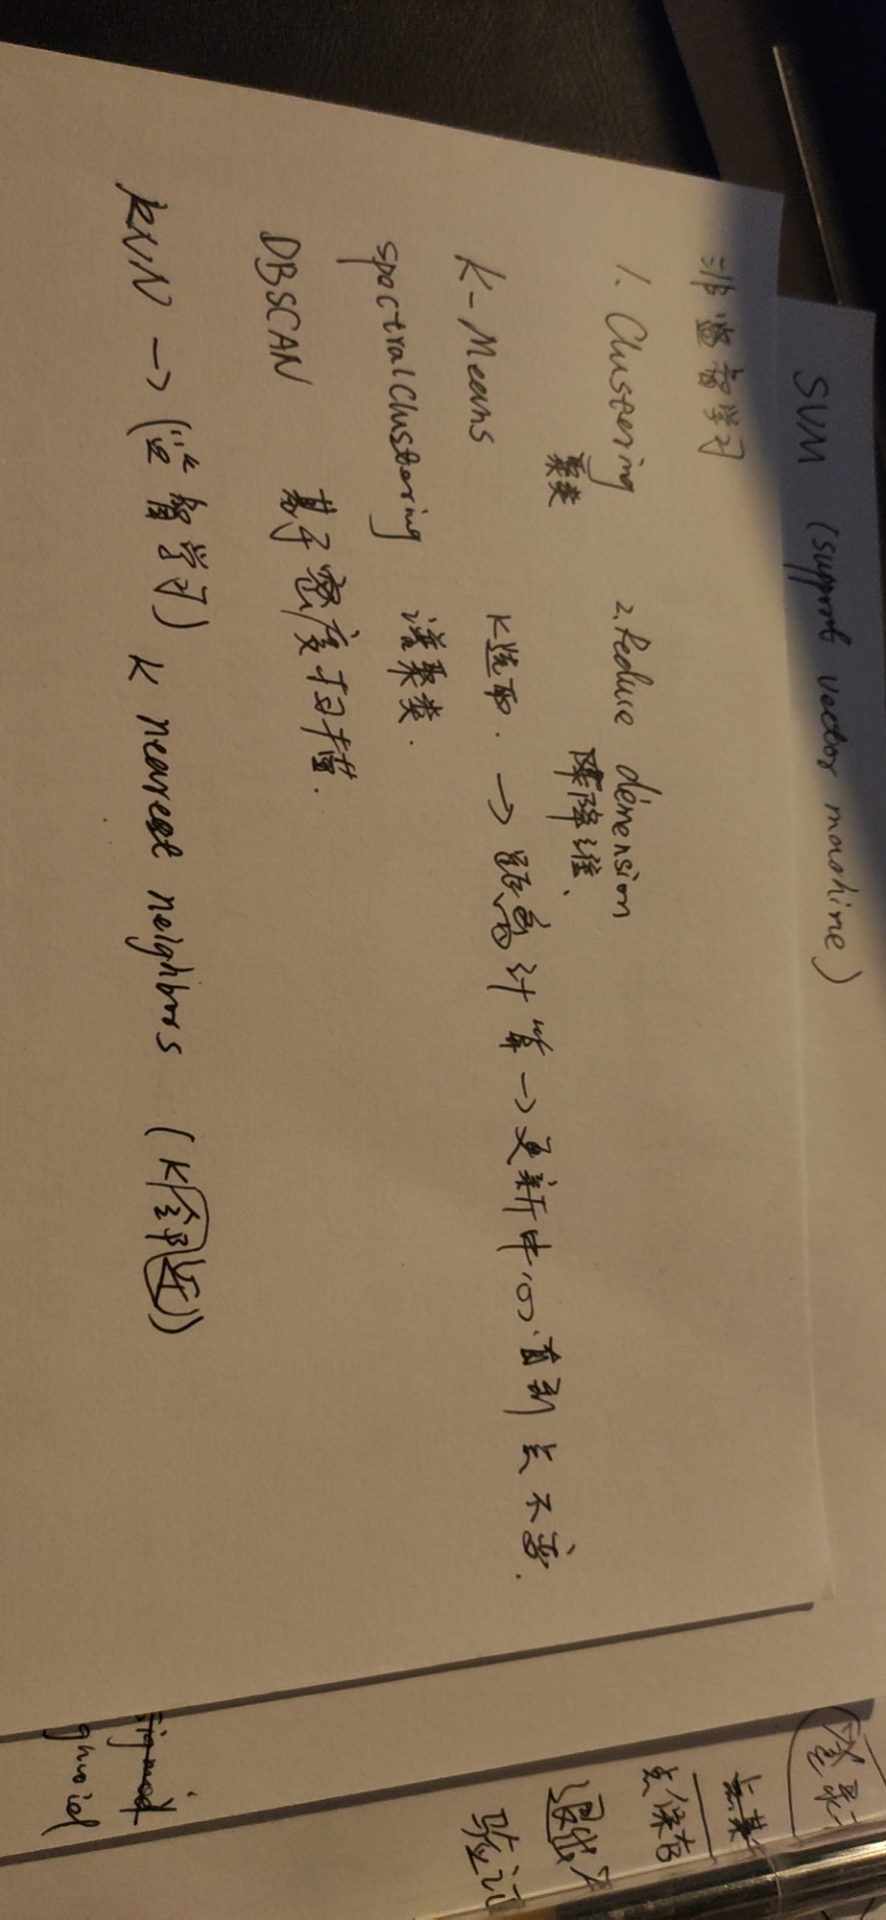 SVM (support vector mashine)
非监督学习
1. Clustering 2. Reduce dimension
聚类 降维、
K-Means K选取. → 距离计算 → 更新中心 直到 长不变.
spectralClustering 谱聚类.
DBSCAN 基于密度扫描.
KNN → (监督学习) K nearest neighbors (K邻近)
登录
点保存
退出
验证
gmoid